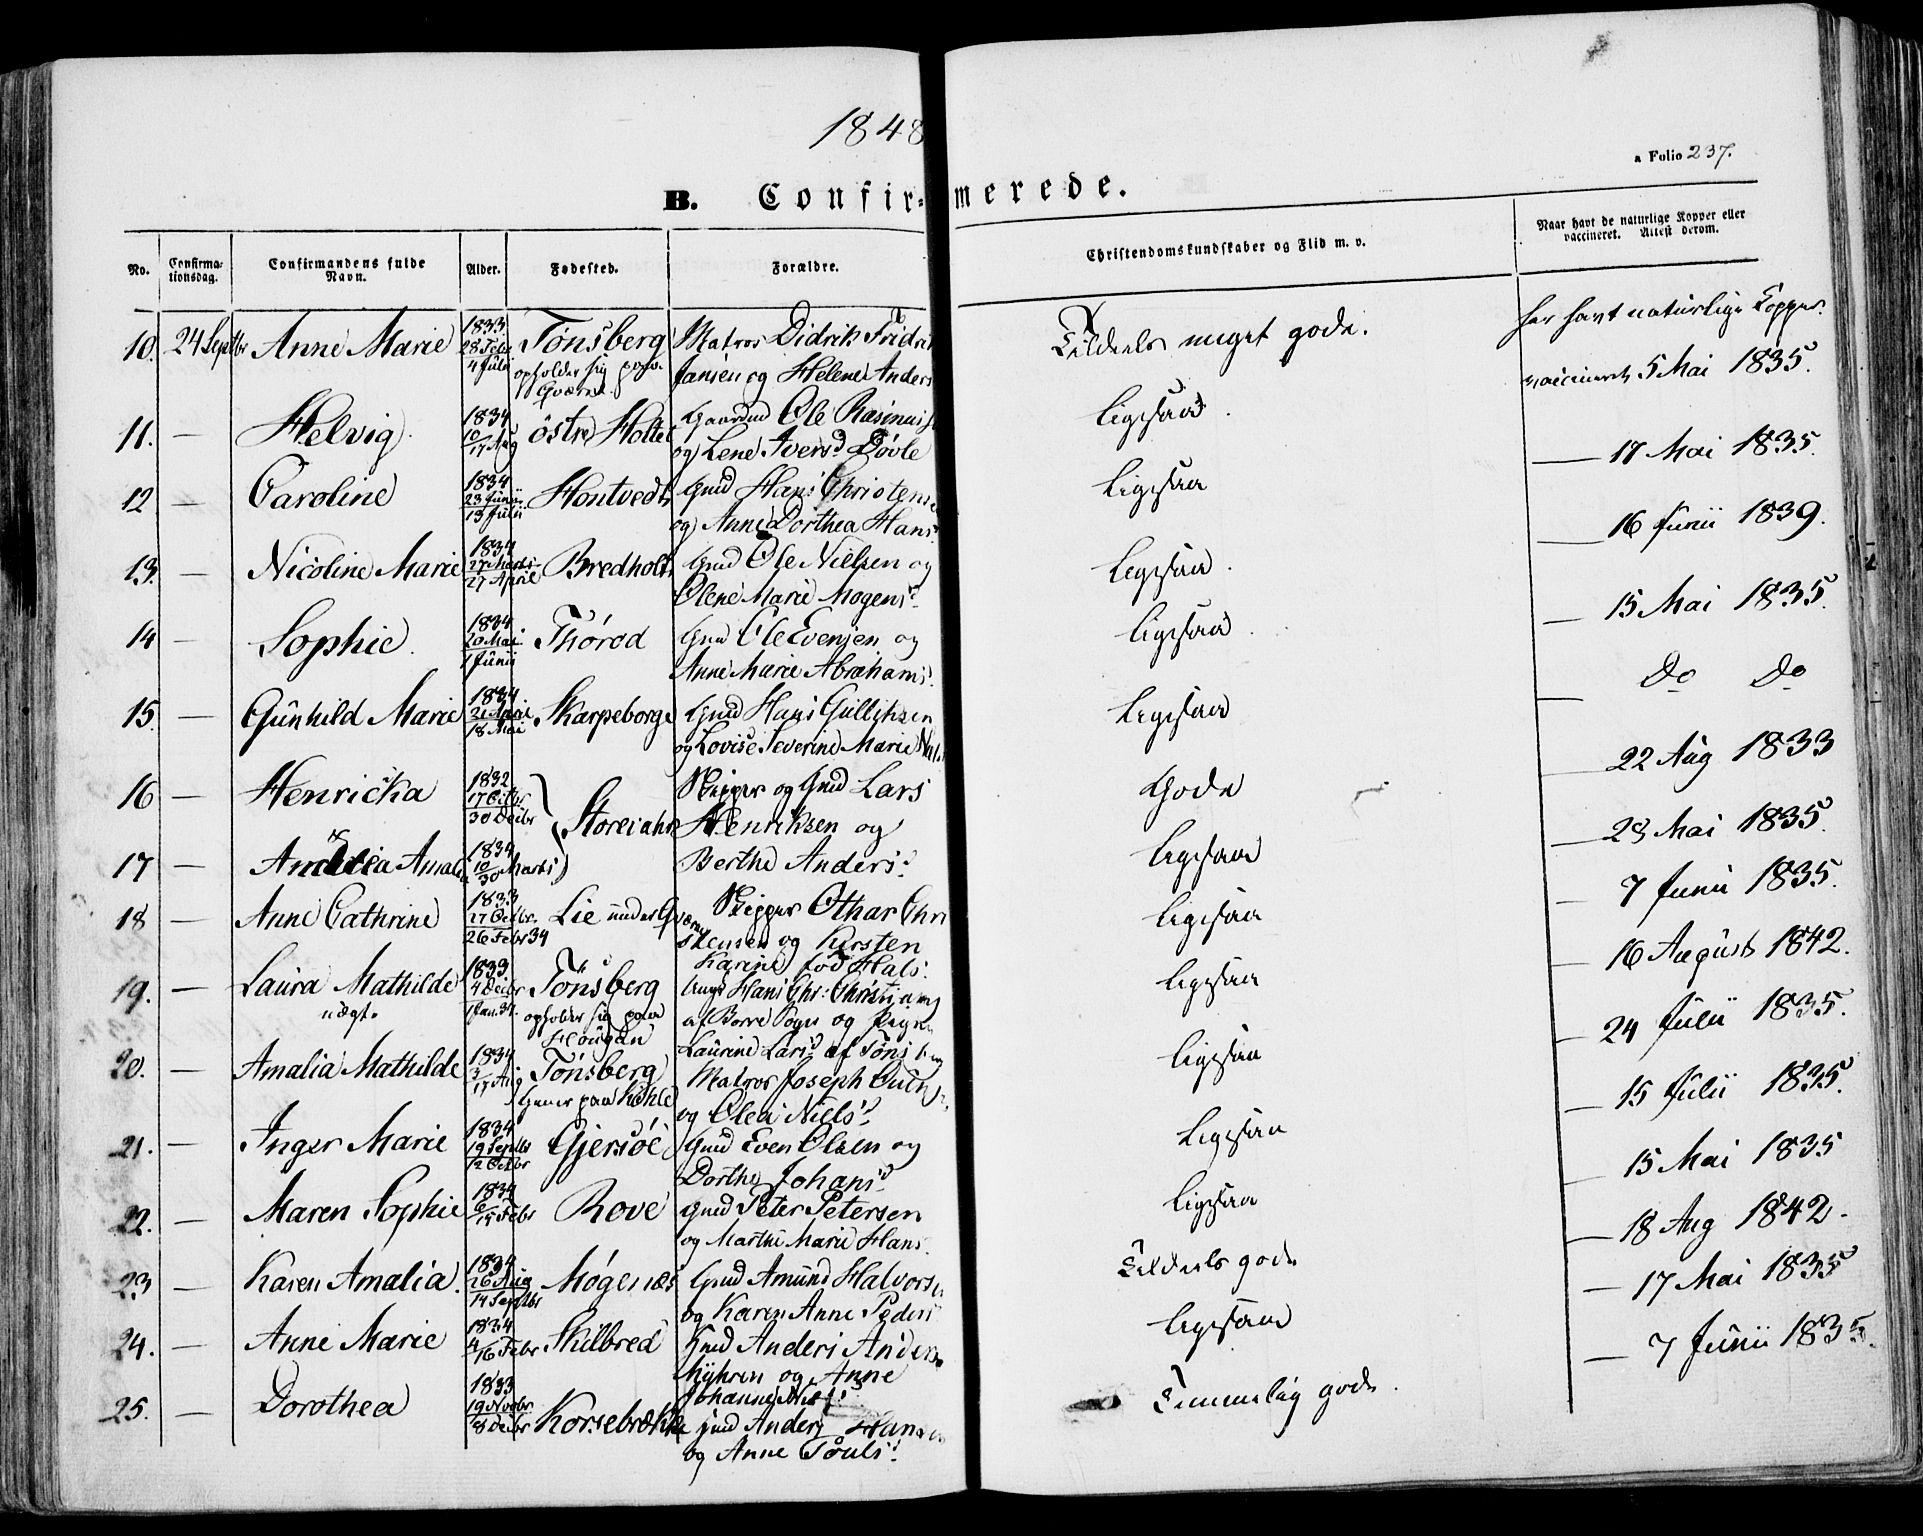 1848
a Folio 237.
B. Confir-merede.
No.
Confirma-
tionsdag.
Confirmandens fulde
Navn.
Alder.
Fødested.
Forældre.
Christendomskundskaber og Flid m. v.
Naar havt de naturlige Kopper eller
vaccineret. Attest derom.
10. 24 Septbr Anne Marie 1833 28 Febr 4 Juli Tønsberg Matros Didrik Fridri Tildeels meget gode. har havt naturlige Kopper.
opholder sig paa Jansen og Helene Anders vaccineret 5 Mai 1835.
Gværne.
11. — Helvig. 1834 10 17 Aug östre Holtet Gaardmd Ole Rasmuss Ligesaa.
og Lene Ivers. Døvle — 17 Mai 1835.
12 — Caroline 1834 23 Junii 13 Julii Hontvedt Gmd Hans Christens Ligesaa
og Anne Dorthea Hans — 16 Junii 1839.
13. — Nicoline Marie 1834 27 Marts 27 April Bredholt Gmd Ole Nielsen og Ligesaa.
Olene Marie Mogens. — 15 Mai 1835.
14 — Sophie. 1834 20 Mai 1 Junii Thörod Gmd Ole Evensen og Ligesaa.
Anne Marie Abrahams. — Do Do
15. — Gunhild Marie 1834 21 April 18 Mai Skarpeborge Gmd Hans Gulliksen Ligesaa
og Lovise Severine Marie — 22 Aug 1833
16 — Henricka 1832 17 Octbr 30 Decbr Skipper og Gmd Lars Gode
Storeiahr Henriksen og — 28 Mai 1835.
17 — Amalia 1834 10 30 Marts Berthe Anders. Ligesaa
— 7 Junii 1835.
18 — Anne Cathrine 1833 27 Octbr. 26 Febr 34 Lie under Gværne Skipper Othar Chri Ligesaa
stensen og Kirsten — 16 August 1842.
Karine fød Hals.
19. — Laura Mathilde 1833 4 Decbr 1 Jan. 34. Tönsberg Ungk Hans Chr: Christians Ligesaa
uægte opholder sig paa af Borre Sogn og Pige — 24 Julii 1835.
Hougan Laurine Lars. af Tönsberg
20. — Amalia Mathilde 1834 3 17 Aug Tönsberg Matros Joseph Ligesaa
paa Kohle og Olea Niels. — 15 Julii 1835.
21. — Inger Marie 1834 19 Septbr 12 Octbr Gjersöe Gmd Even Olsen og Ligesaa
Dorthe Johans. — 15 Mai 1835
22. — Maren Sophie 1834 6 15 Febr Rove Gmd Peter Petersen Ligesaa
og Marthe Marie Hans. — 18 Aug 1842.
23 — Karen Amalia. 1834 26 Aug 14 Septbr Møgenæs Gmd Amund Halvorse Tildeels gode
og Karen Anne Peders — 17 Mai 1835
24. — Anne Marie 1834 4 16 Febr Skilbred Gmd Anders Anders Ligesaa
Myhren og Anne — 7 Junii 1835.
Johanne Niels.
25. — Dorothea 1833 19 Novbr 8 Decbr Korsebrække Gmd Anders Hansen Temmelig gode.
og Anne Pouls.